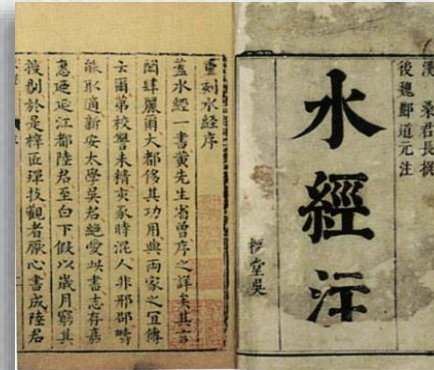 漢 桑君長撰
後魏酈道元注
水經注
重刻水經序
蓋水經一書黃先生省曾序之詳矣其言
閎肆麗爾大都侈其功用與兩家之宜傳
云爾弟校讐未精亥豕時混人非邢邵疇
能取適新安太學吳君絕愛此書志存嘉
惠迺延江都陸君至白下假以歲月窮其
後剞於是梓匠殫技觀者厭心書成陸君